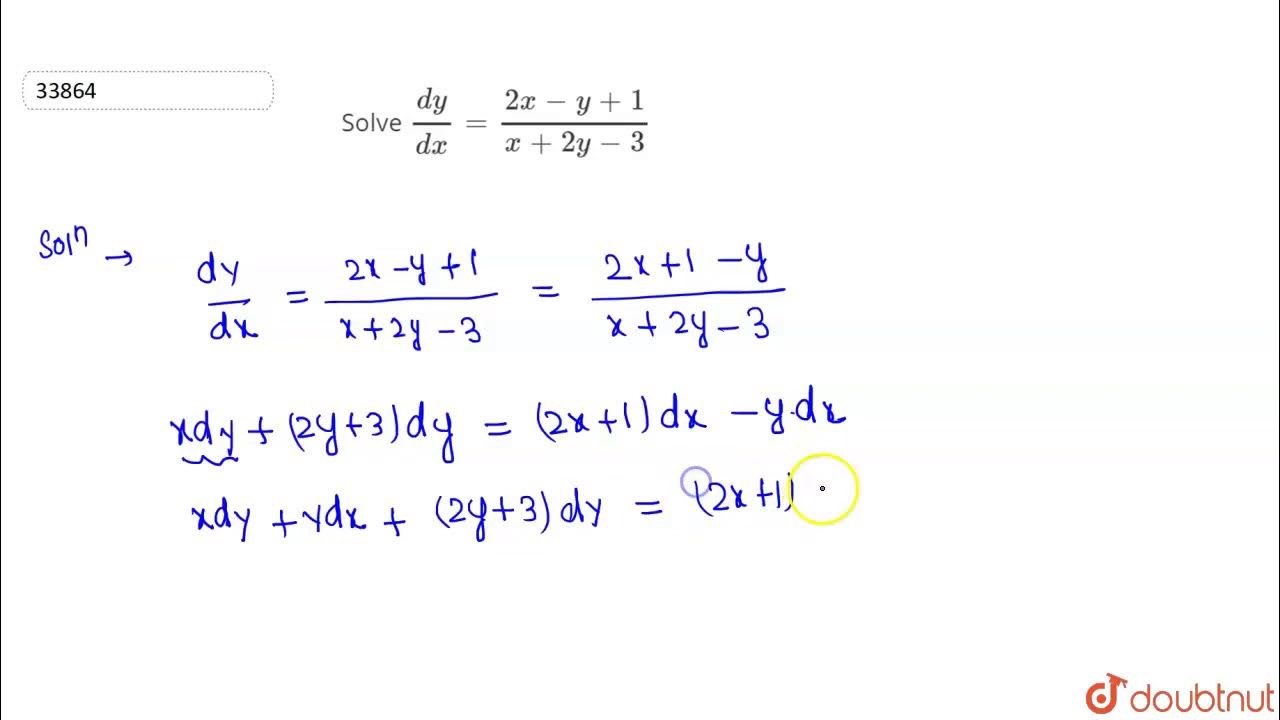 33864
Solve dy/dx = (2x − y + 1)/(x + 2y − 3)
Solⁿ → dy/dx = (2x − y + 1)/(x + 2y − 3) = (2x + 1 − y)/(x + 2y − 3)
xdy + (2y + 3) dy = (2x + 1) dx − y.dx
xdy + ydx + (2y + 3) dy = (2x + 1)
doubtnut